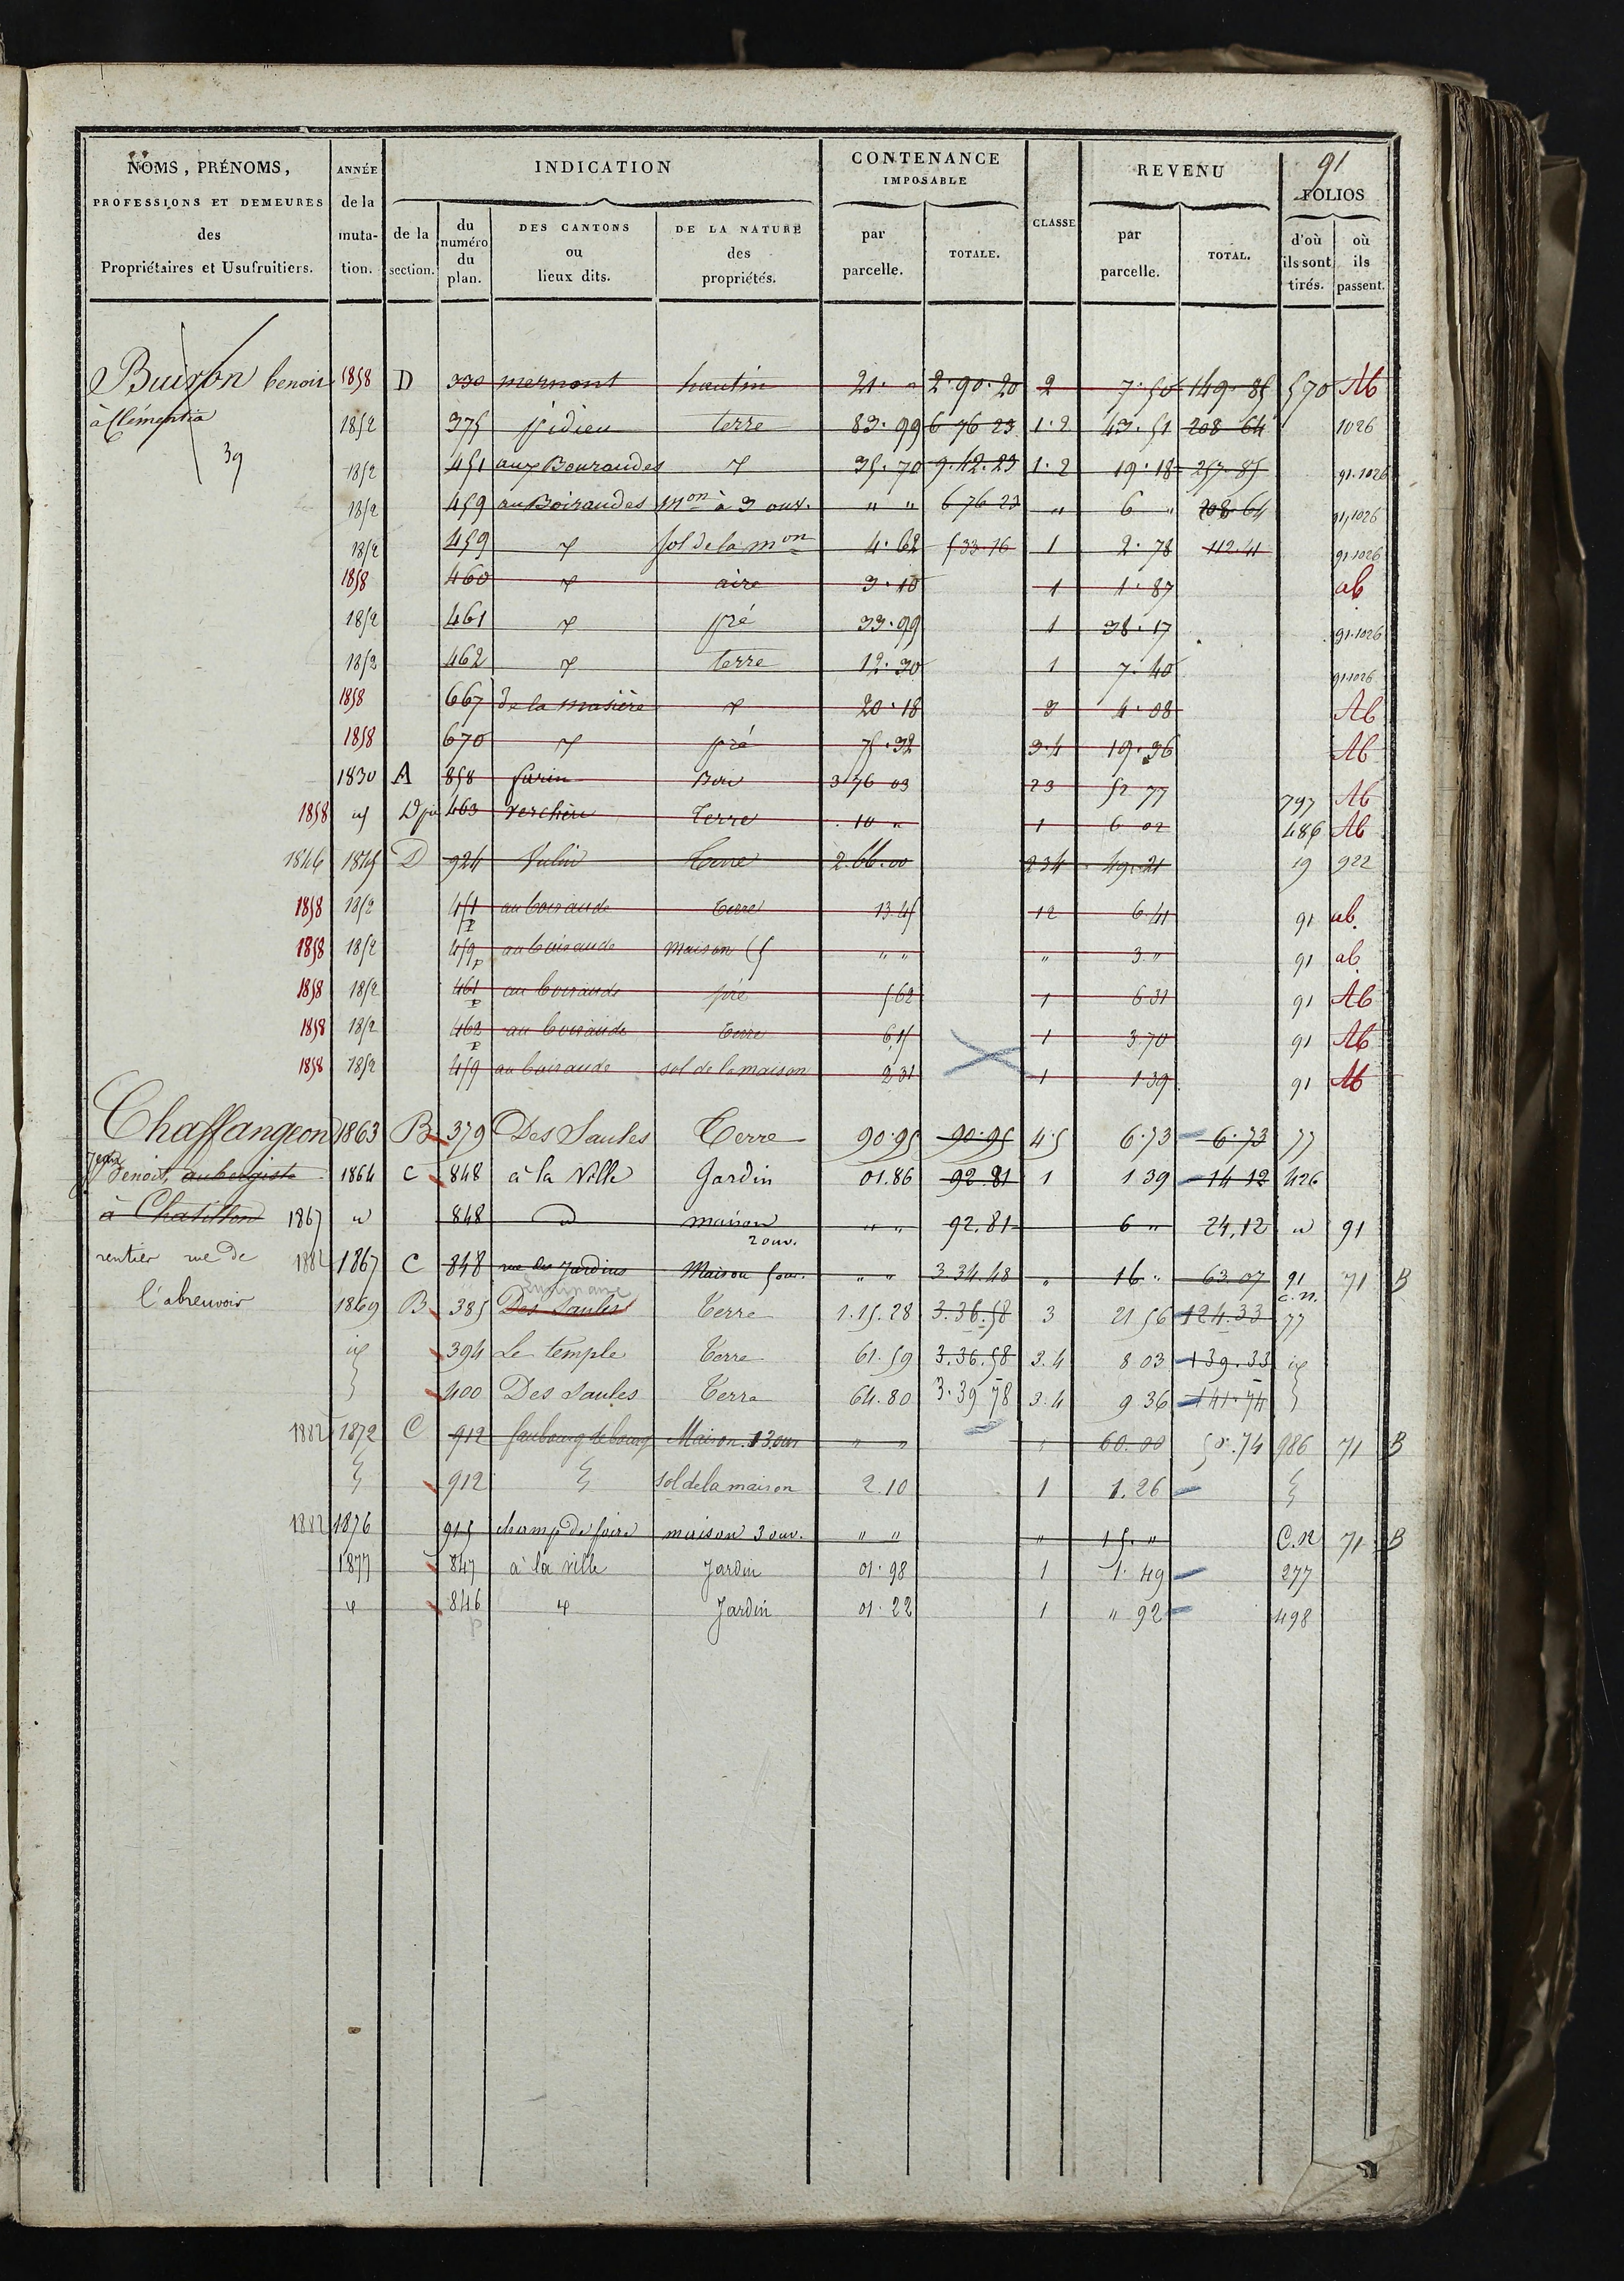 91
NOMS, PRÉNOMS, PROFESSIONS ET DEMEURES des Propriétaires et Usufruitiers.
ANNÉE de la mutation.
INDICATION
de la section.
du numéro du plan.
DES CANTONS ou lieux dits.
DE LA NATURE des propriétés.
CONTENANCE IMPOSABLE
par parcelle.
TOTALE.
CLASSE
REVENU
par parcelle.
TOTAL.
FOLIOS
d'où ils sont tirés.
où ils passent.
Buisson benoit 1858 D 330 mernont hautin 21 · " 2·90·20 2 7·50 149·85 570 Ab
à Clémentia 1852 375 terre 83·99 6 76 23 1·2 43·51 208 64 1026
39 1852 451 aux Bouraudes 35·70 9·42·23 1·2 19·18 257·85 91·1026
1852 459 au Boiraudes mon à 3 ouv. " " 6 76 23 " 6 " 208 64 91,1026
1852 459 sol de la mon 4·62 5 33·16 1 2·78 112·41 91·1026
1858 460 aire 3·10 1 1·87 ab
1852 461 pré 33·99 1 38·17 91·1026
1852 462 terre 12·30 1 7·40 91·1026
1858 667 de la masière 20·18 3 4·08 Ab
1858 670 pré 75·32 3·4 19·36 Ab
1830 A 858 3 76 03 23 52 77 797 Ab
1858 463 Verchère Terre 10 " 1 6 02 486 Ab
1846 1845 D 924 Vulin Terre 2.66.00 234 49.21 19 922
1858 1852 451 p au boiraude terre 13.45 12 6.41 91 ab
1858 1852 459 p au boiraude maison " " " 3 " 91 ab
1858 1852 461 p au boiraude pré 5 62 1 6 31 91 Ab
1858 1852 462 p au boiraude terre 6.15 1 3.70 91 Ab
1858 1852 459 au boiraude sol de la maison 2 31 1 1.39 91 Ab
Chaffangeon 1863 B 379 Des Saules Terre 90·95 90·95 4·5 6·73 6·73 77
Jean Benoit, aubergiste 1864 C 848 à la Ville Jardin 01.86 92.81 1 1 39 14 12 426
à Chatillon 1867 " 848 d maison 2 ouv. " " 92.81 6 " 24,12 " 91
rentier rue de 1882 1867 C 848 rue des Jardins Maison 5 ouv. " " 3.34.48 " 16 " 63.07 91 C.N. 71 B
l'abreuvoir 1869 B 385 Des Saules Terre 1.15.28 3.36.58 3 21 56 124.33 77
394 Le temple Terre 61.59 3.36.58 3.4 8 03 139.33
400 Des Saules Terre 64.80 3·39 78 3.4 9 36 141·74
1882 1872 C 912 faubourg de bourg Maison 13 ouv " " 60.00 986 71 B
912 sol de la maison 2.10 1 1.26
1882 1876 915 champ de foire maison 3 ouv. " " " 15 " C.N 71 B
1877 847 à la ville Jardin 01·98 1 1·49 277
846 p Jardin 01·22 1 " 92 498